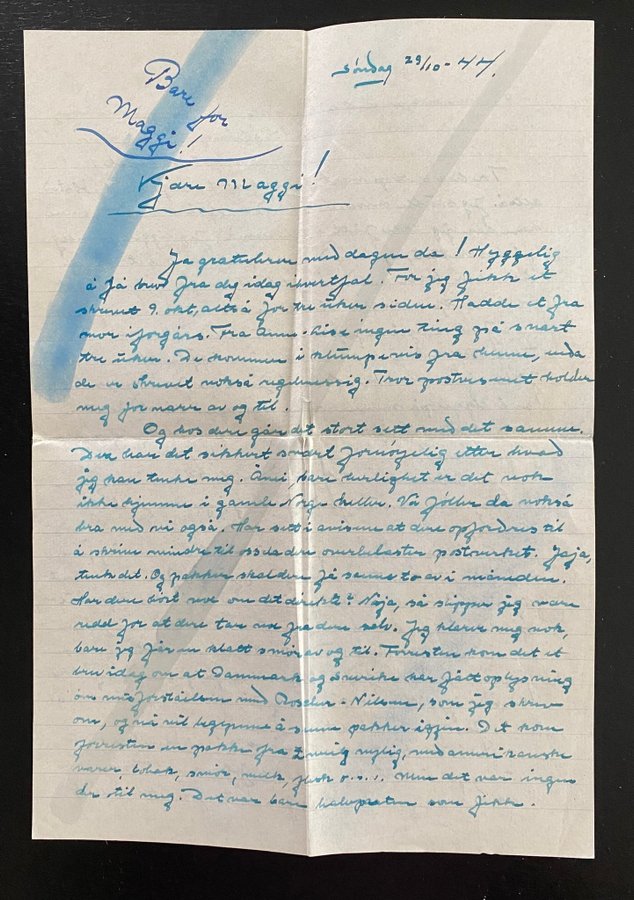 Søndag 29/10-44.
Bare for
Maggi!
Kjære Maggi!
Ja gratulerer med dagen da! Hyggelig
å få brev fra deg idag ihvertfal. For jeg fikk et
skrevet 9. okt, altså for tre uker siden. Hadde et fra
mor iforgårs. Fra Anne-Lise ingen ting på snart
tre uker. De kommer i klumpevis fra henne, enda
de er skrevet nokså regelmessig. Tror postvesenet holder
meg for narr av og til.
Og hos dere går det stort sett med det samme.
Dere har det sikkert svært fornöyelig etter hvad
jeg kan tenke meg. Ånei bare herlighet er det nok
ikke hjemme i gamle Norge heller. Vi föller da nokså
bra med vi også. Har sett i avisene at dere opfordres til
å skrive mindre til oss da dere overbelaster postverket. Jaja,
tenk det. Og pakker skal dere få sende to av i måneden.
Har dere hört noe om det direkte? Nåja, så slipper jeg være
redd for at dere tar noe fra dere selv. Jeg klarer meg nok,
bare jeg får en klatt smör av og til. Foresten kom det et
brev idag om at Danmark og Sverike har fått oplysning
om misforståelsen med -Nilsen, som jeg skrev
om, og nå vil begynne å sende pakker igjen. Det kom
forresten en pakke fra nylig, med amerikanske
varer, tobak, smör, melk, o.s.v. Men det var ingen
der til meg. Det var bare som fikk.